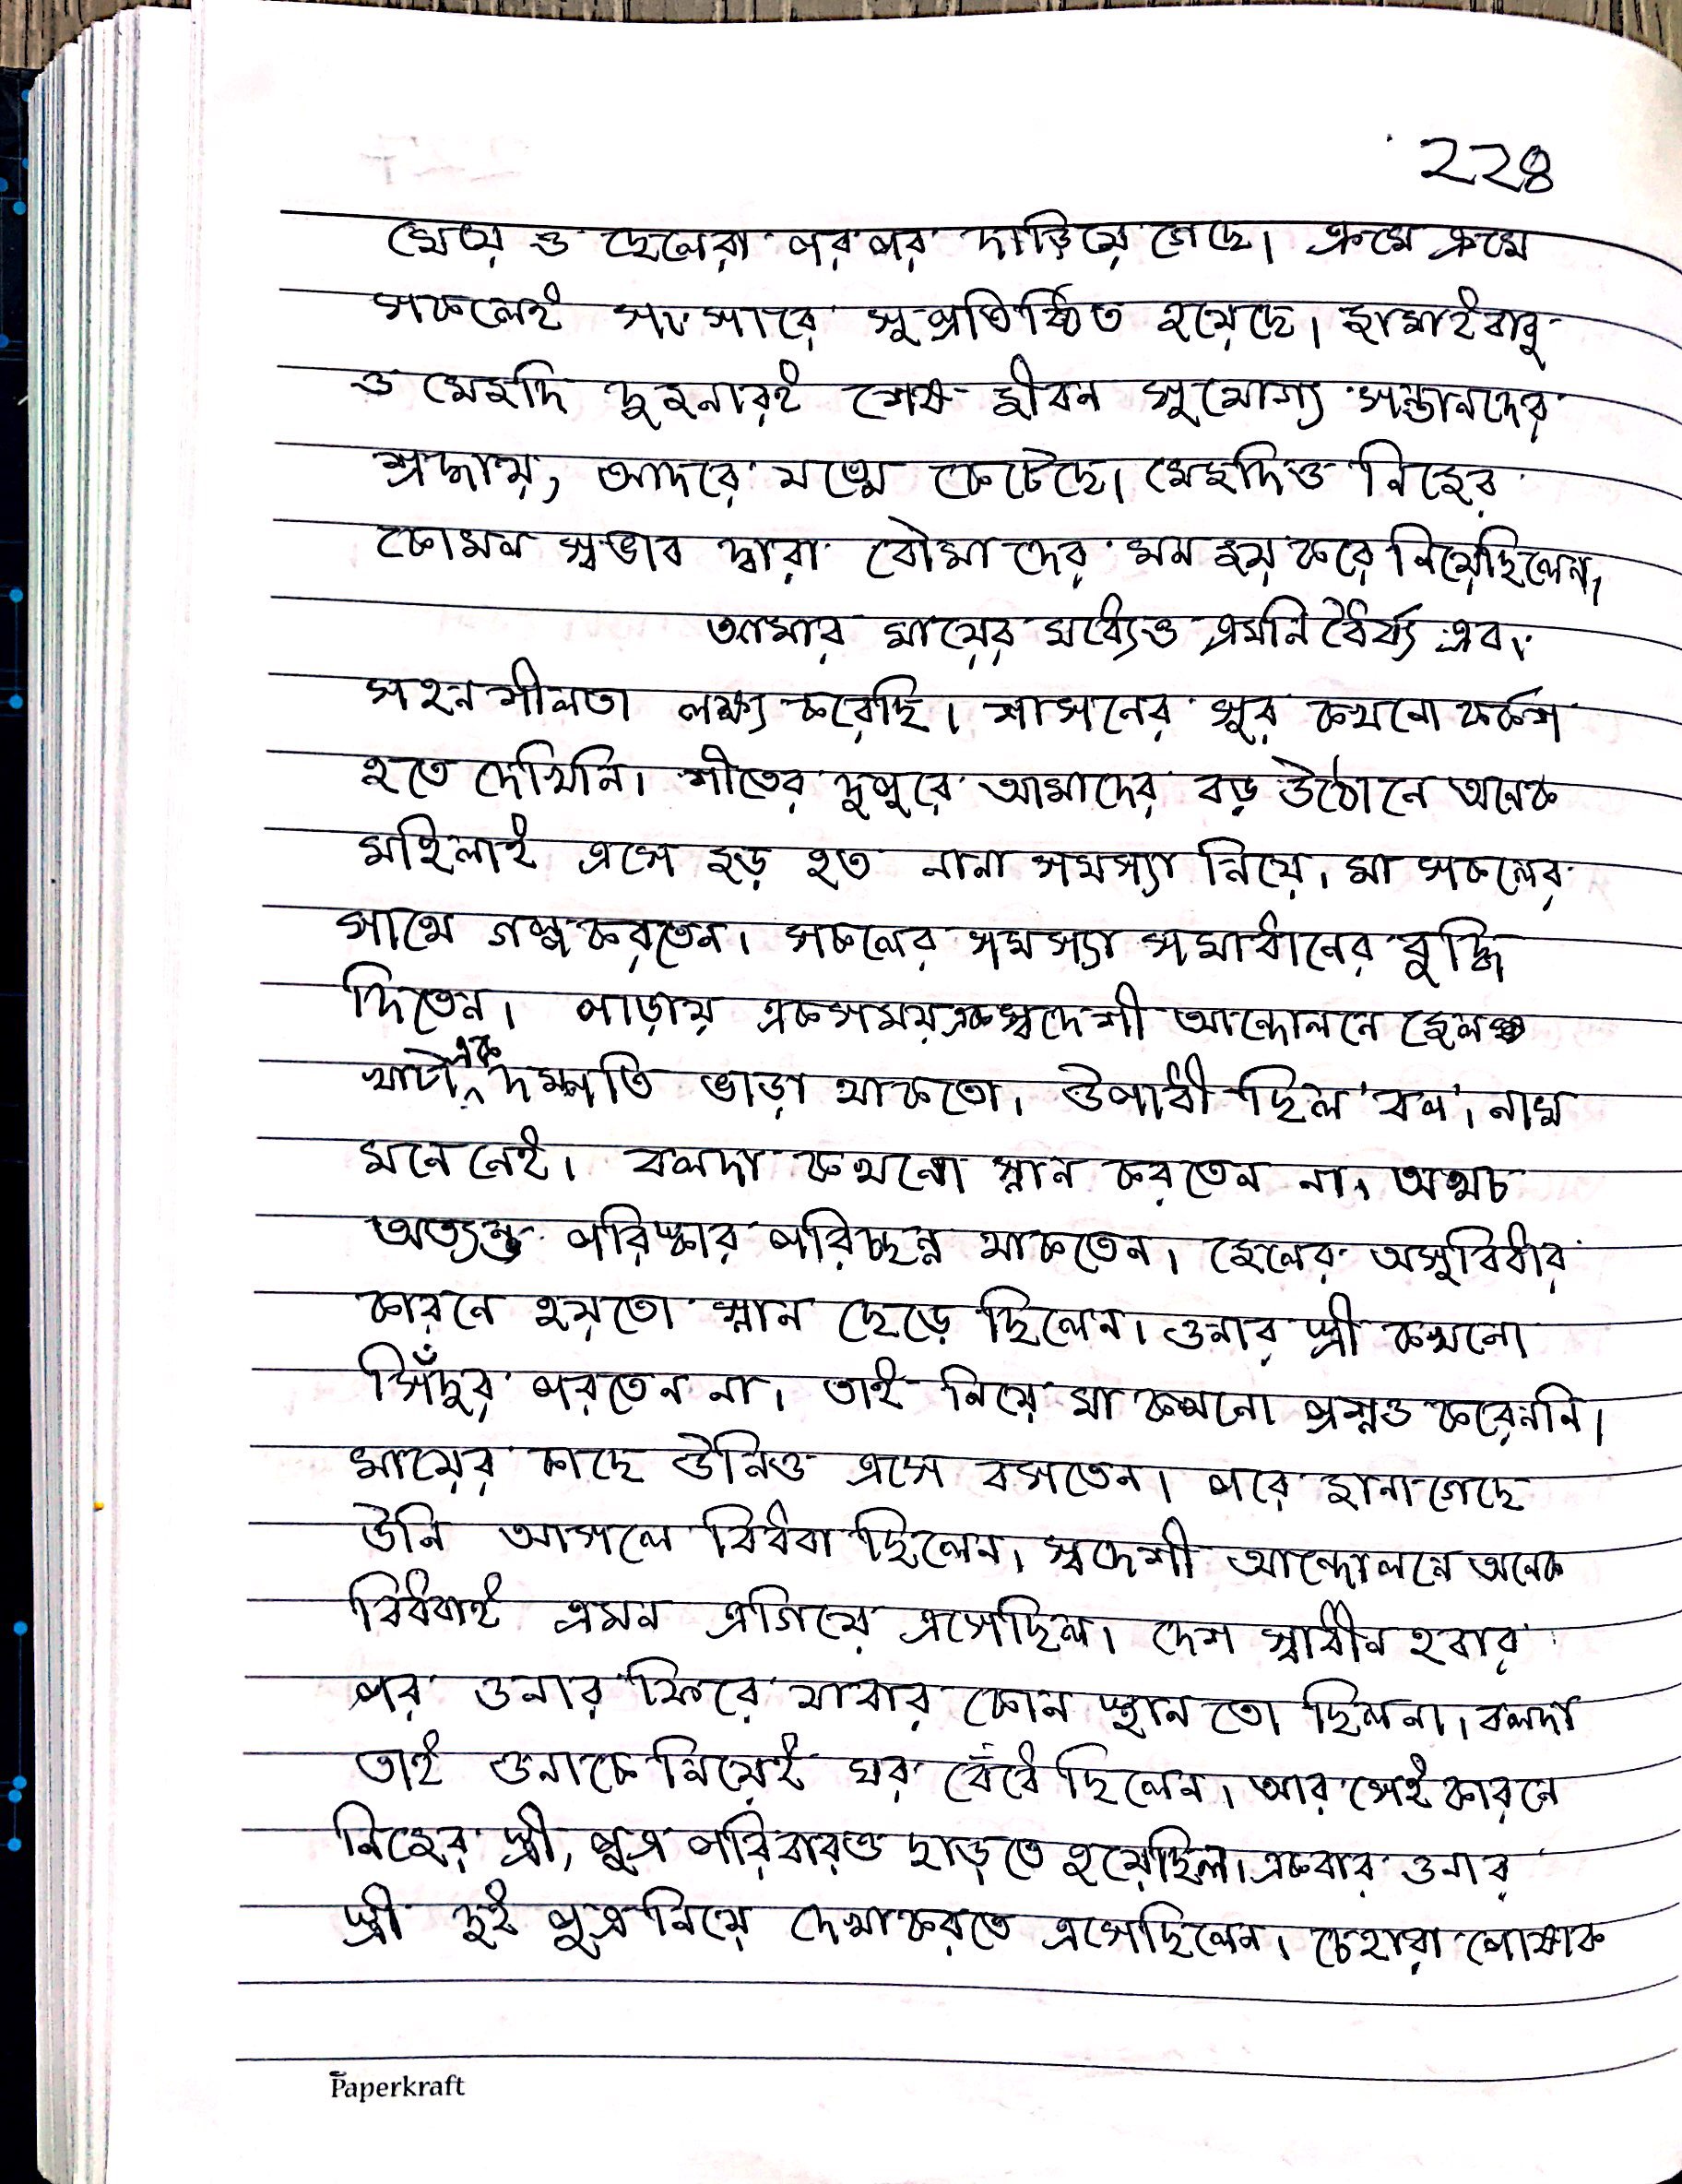 ২২৪
মেয়ে ও ছেলেরা পর পর দাড়িয়ে গেছে। ক্রমে ক্রমে
সকলেই সংসারে সুপ্রতিষ্ঠিত হয়েছে। জামাইবাবু
ও মেজদি দুজনারই শেষ জীবন সুযোগ্য সন্তানদের
শ্রদ্ধায়, আদরে যত্নে কেটেছে। মেজদিও নিজের
কোমল স্বভাব দ্বারা বৌমাদের মন জয় করে নিয়েছিলেন,
আমার মায়ের মধ্যেও এমনি ধৈর্য্য এবং
সহনশীলতা লক্ষ্য করেছি। শাসনের সুর কখনো কর্কশ
হতে দেখিনি। শীতের দুপুরে আমাদের বড় উঠোনে অনেক
মহিলাই এসে জড় হত নানা সমস্যা নিয়ে। মা সকলের
সাথে গল্প করতেন। সকলের সমস্যা সমাধানের বুদ্ধি
দিতেন। পাড়ায় একসময় এক স্বদেশী আন্দোলনে জেল
খাটা এক দম্পতি ভাড়া থাকতো। উপাধী ছিল 'বল'। নাম
মনে নেই। বলদা কখনো স্নান করতেন না, অথচ
অত্যন্ত পরিষ্কার পরিচ্ছন্ন থাকতেন। জেলের অসুবিধার
কারনে হয়তো স্নান ছেড়ে ছিলেন। ওনার স্ত্রী কখনো
সিঁদুর পরতেন না। তাই নিয়ে মা কখনো প্রশ্নও করেননি।
মায়ের কাছে উনিও এসে বসতেন। পরে জানা গেছে
উনি আসলে বিধবা ছিলেন। স্বদেশী আন্দোলনে অনেক
বিধবাই এমন এগিয়ে এসেছিল। দেশ স্বাধীন হবার
পর ওনার ফিরে যাবার কোন স্থান তো ছিলনা। বলদা
তাই ওনাকে নিয়েই ঘর বেঁধে ছিলেন। আর সেই কারনে
নিজের স্ত্রী, পুত্র পরিবারও ছাড়তে হয়েছিল। একবার ওনার
স্ত্রী দুই পুত্র নিয়ে দেখা করতে এসেছিলেন। চেহারা পোষাক
Paperkraft